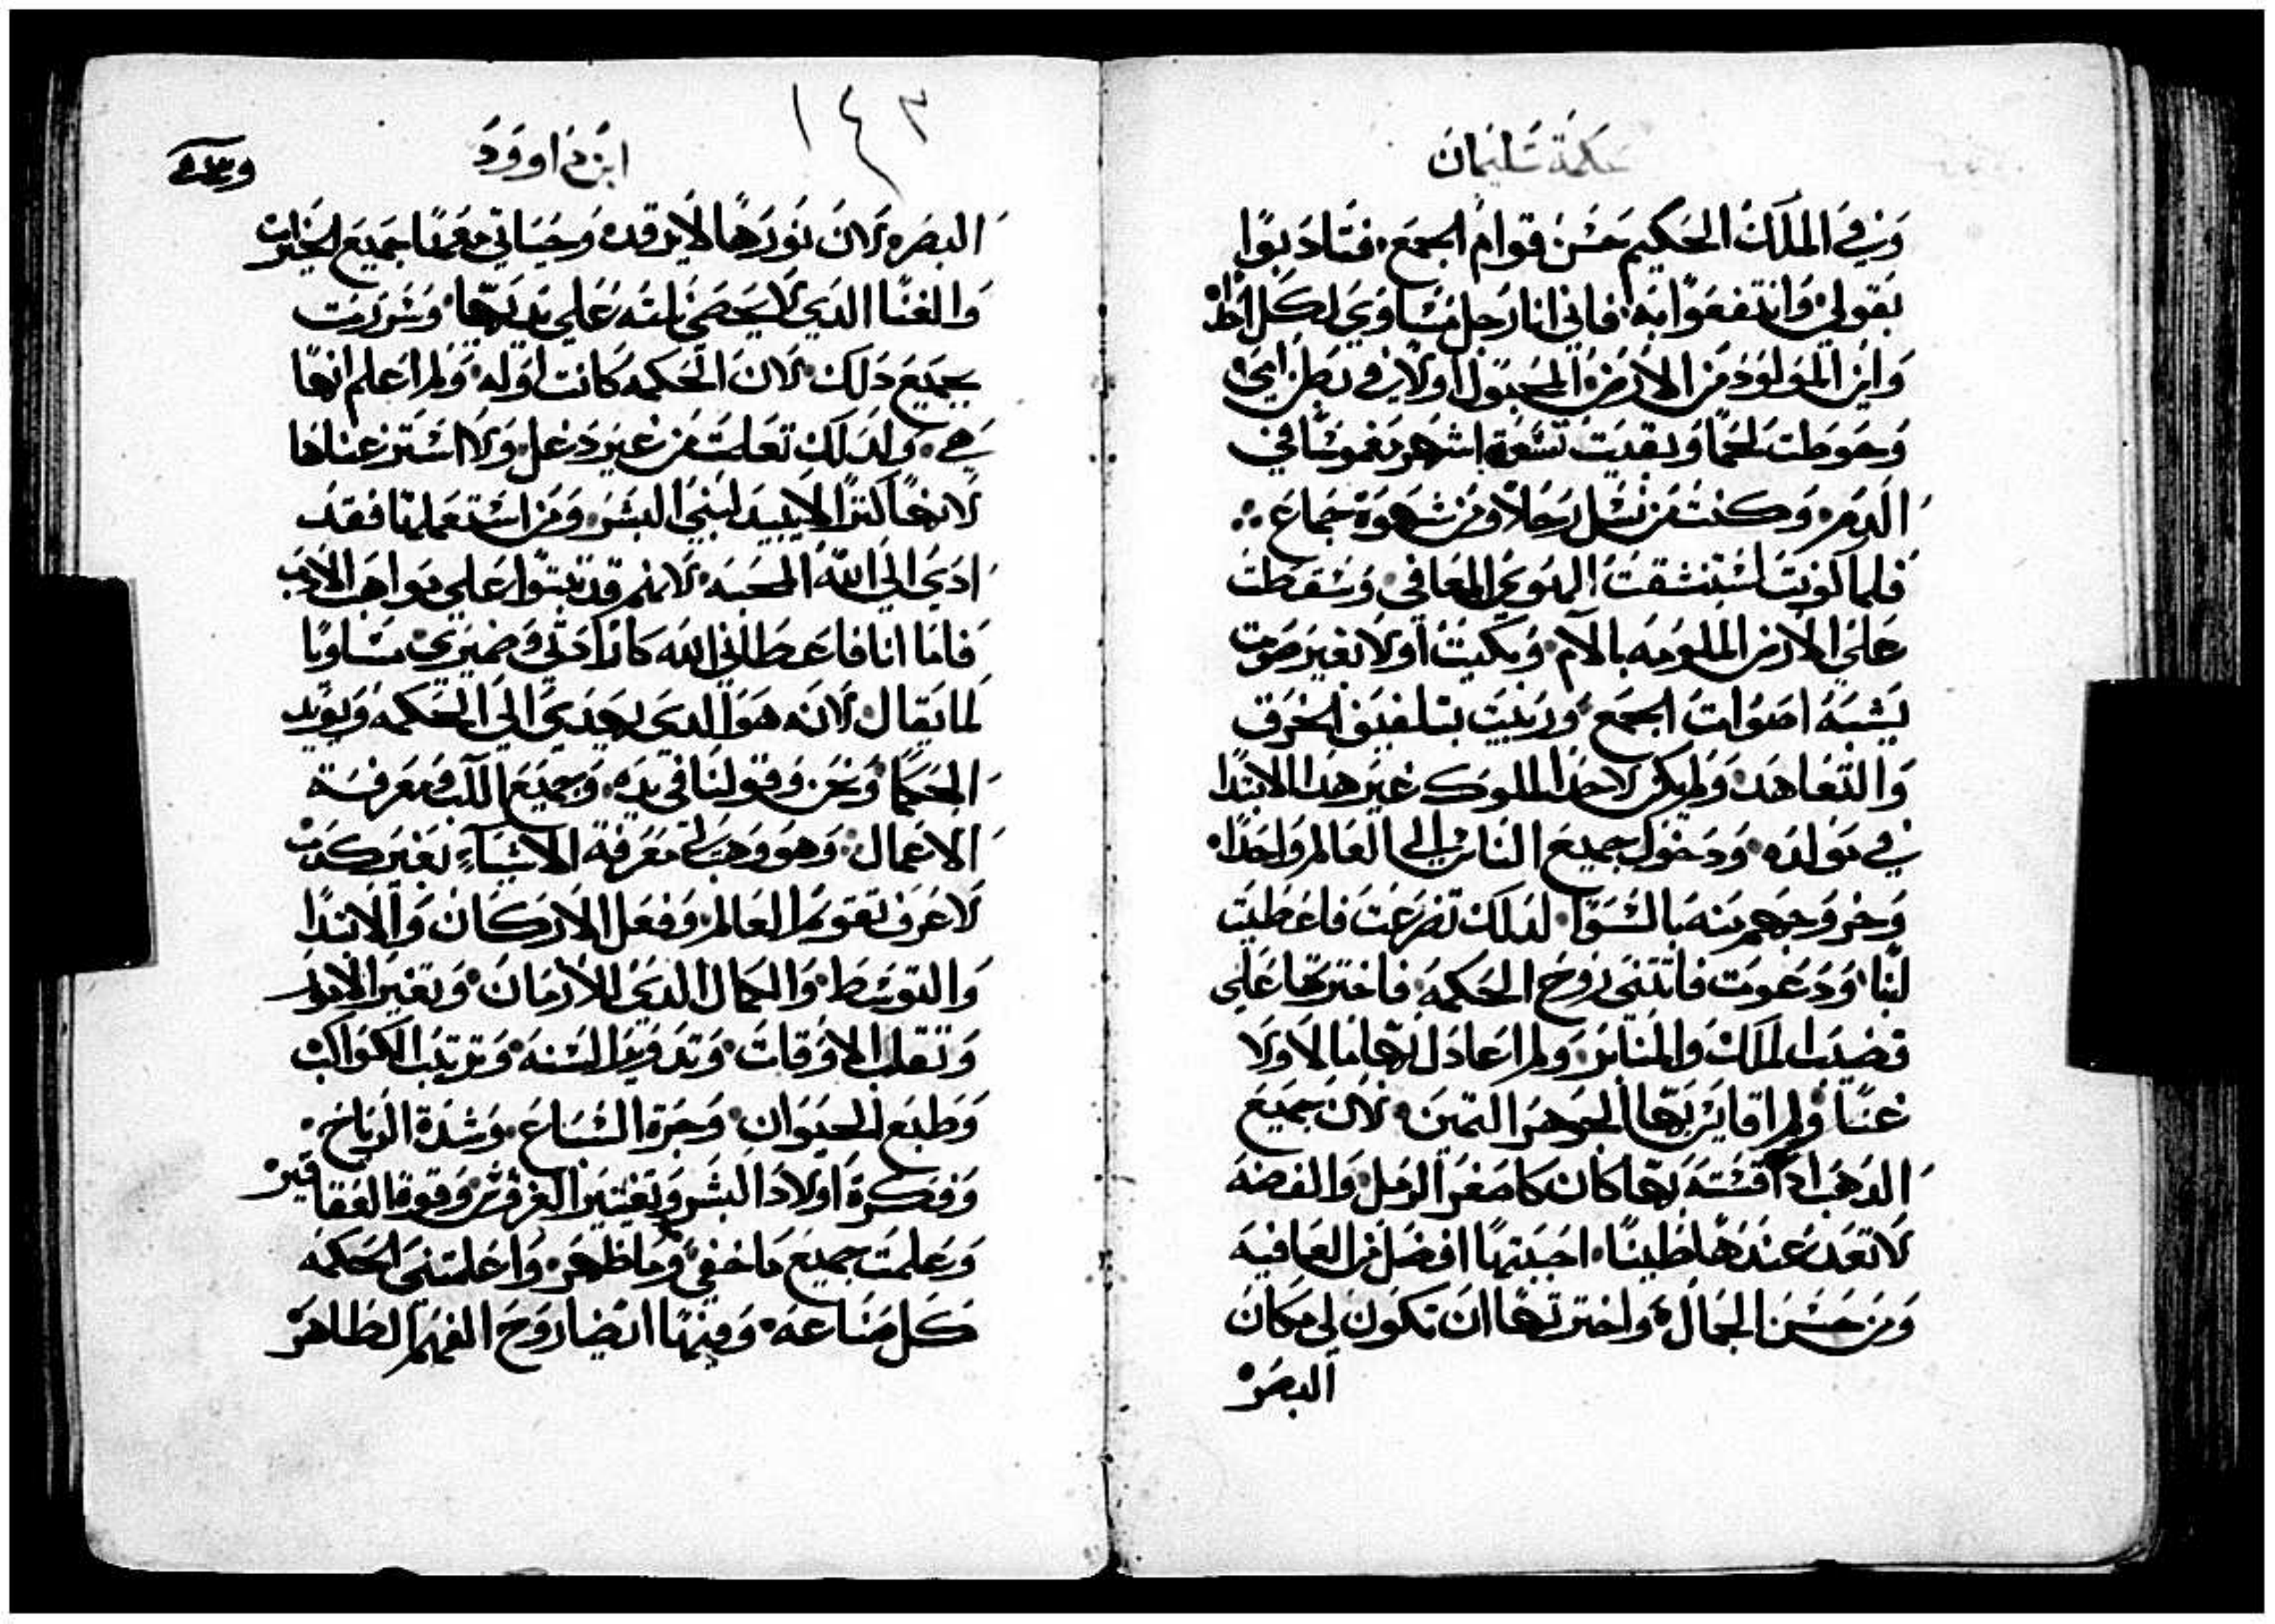 حكمة سليمان
وفي الملك الحكيم حسن قوام الجمع فتادبوا
بقولي وانتفعوا به فاني انا رجل مساوي لكل احد
وابن المولود من الارض المجبول اولا في بطن امي
وحوطت لحما وبقيت تسعة اشهر مغموسا في
الدم وكنت من نسل رجلا ومن شهوة جماع
فلما كونت استنشقت الهوي المعافي وسقطت
علي الارض الملومه بالالام وبكيت اولا بغير صوت
يشبه اصوات الجمع وربيت بتلفيف الخرق
والتعاهد ولم يكن لاحد الملوك غير هدا الابتدا
في مولده ودخول جميع الناس الي العالم واحدا
وخروجهم منه بالسوا لدلك تضرعت فاعطيت
لبا ودعوت فاتتني روح الحكمه فاخترتها علي
قضيب الملك والمنابر ولم اعادل بها مالا ولا
غنا ولم اقايس بها الجوهر التمين لان جميع
الدهب ادا قسته بها كان كاصغر الرمل والفضه
لا تعد عندها طينا احببتها افضل من العافيه
ومن حسن الجمال واخترتها ان تكون لي مكان
البصر
١٤٣
ابن داوود
البصر لان نورها لا يرقد وجياتي معها جميع الخيرات
والغنا الدي لا يحصي نلته علي يديها وسررت
بجميع دلك لان الحكمه كانت اوله ولم اعلم انها
هي ولدلك تعلمت من غير دغل ولا استر غناها
لانها كنزا لا يبيد لبني البشر ومن استعملها فقد
ادي الي الله المحبه لانهم قد تبتوا علي مواهب الادب
فاما انا فاعطاني الله كارادتي وضميري مساويا
لما يقال لانه هو الدي يهدي الي الحكمه ويويد
الحكما ونحن وقولنا في يده وجميع اللب ومعرفة
الاعمال وهو وهب لي معرفة الاشياء بغير كدب
لاعرف تقويم العالم وفعل الاركان والابتدا
والتوسط والكمال الدي للازمان وتغير الامور
وتقلب الاوقات وتدوير السنه وترتيب الكواكب
وطبع الحيوان وجرة السباع وشدة الرياح
وفكرة اولاد البشر وتغيير الغروس وقوة العقاقير
وعلمت جميع ما خفي وما ظهر واعلمتني الحكمه
كل صناعه وفيها ايضا روح الفهم الطاهر